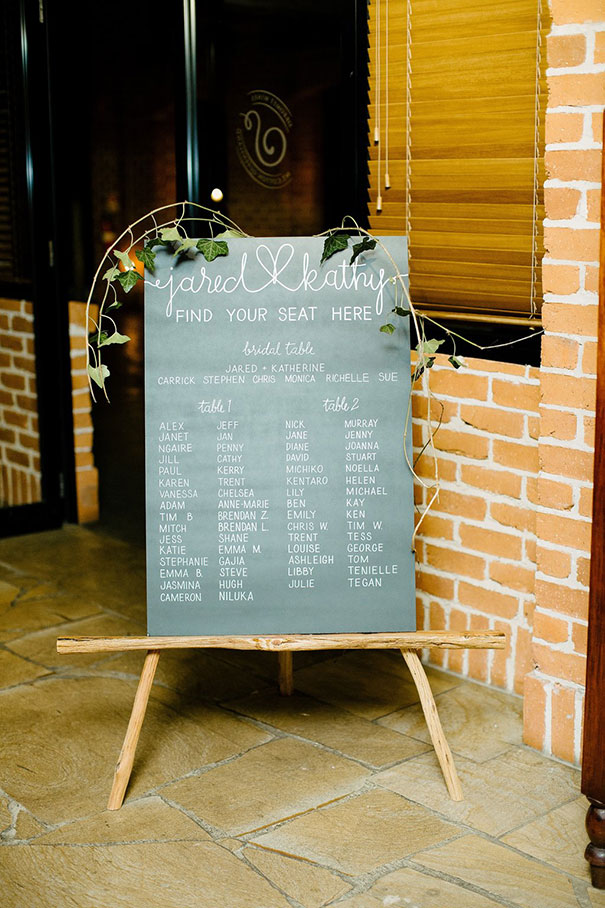 jared ♡ kathy
FIND YOUR SEAT HERE
bridal table
JARED + KATHERINE
CARRICK STEPHEN CHRIS MONICA RICHELLE SUE
table 1
ALEX JEFF
JANET JAN
NGAIRE PENNY
JILL CATHY
PAUL KERRY
KAREN TRENT
VANESSA CHELSEA
ADAM ANNE-MARIE
TIM B BRENDAN Z.
MITCH BRENDAN L.
JESS CHRIS
KATIE EMMA M.
STEPHANIE GAJIA
EMMA B. STEVE
JASMINA HUGH
CAMERON NILUKA
table 2
NICK MURRAY
JANE JENNY
DIANE JOANNA
DAVID STUART
MICHIKO NOELLA
KENTARO HELEN
LILY MICHAEL
BEN KAY
EMILY KEN
CHRIS W. TIM W.
TRENT TESS
LOUISE GEORGE
ASHLEIGH TOM
LIBBY TENIELLE
JULIE TEGAN